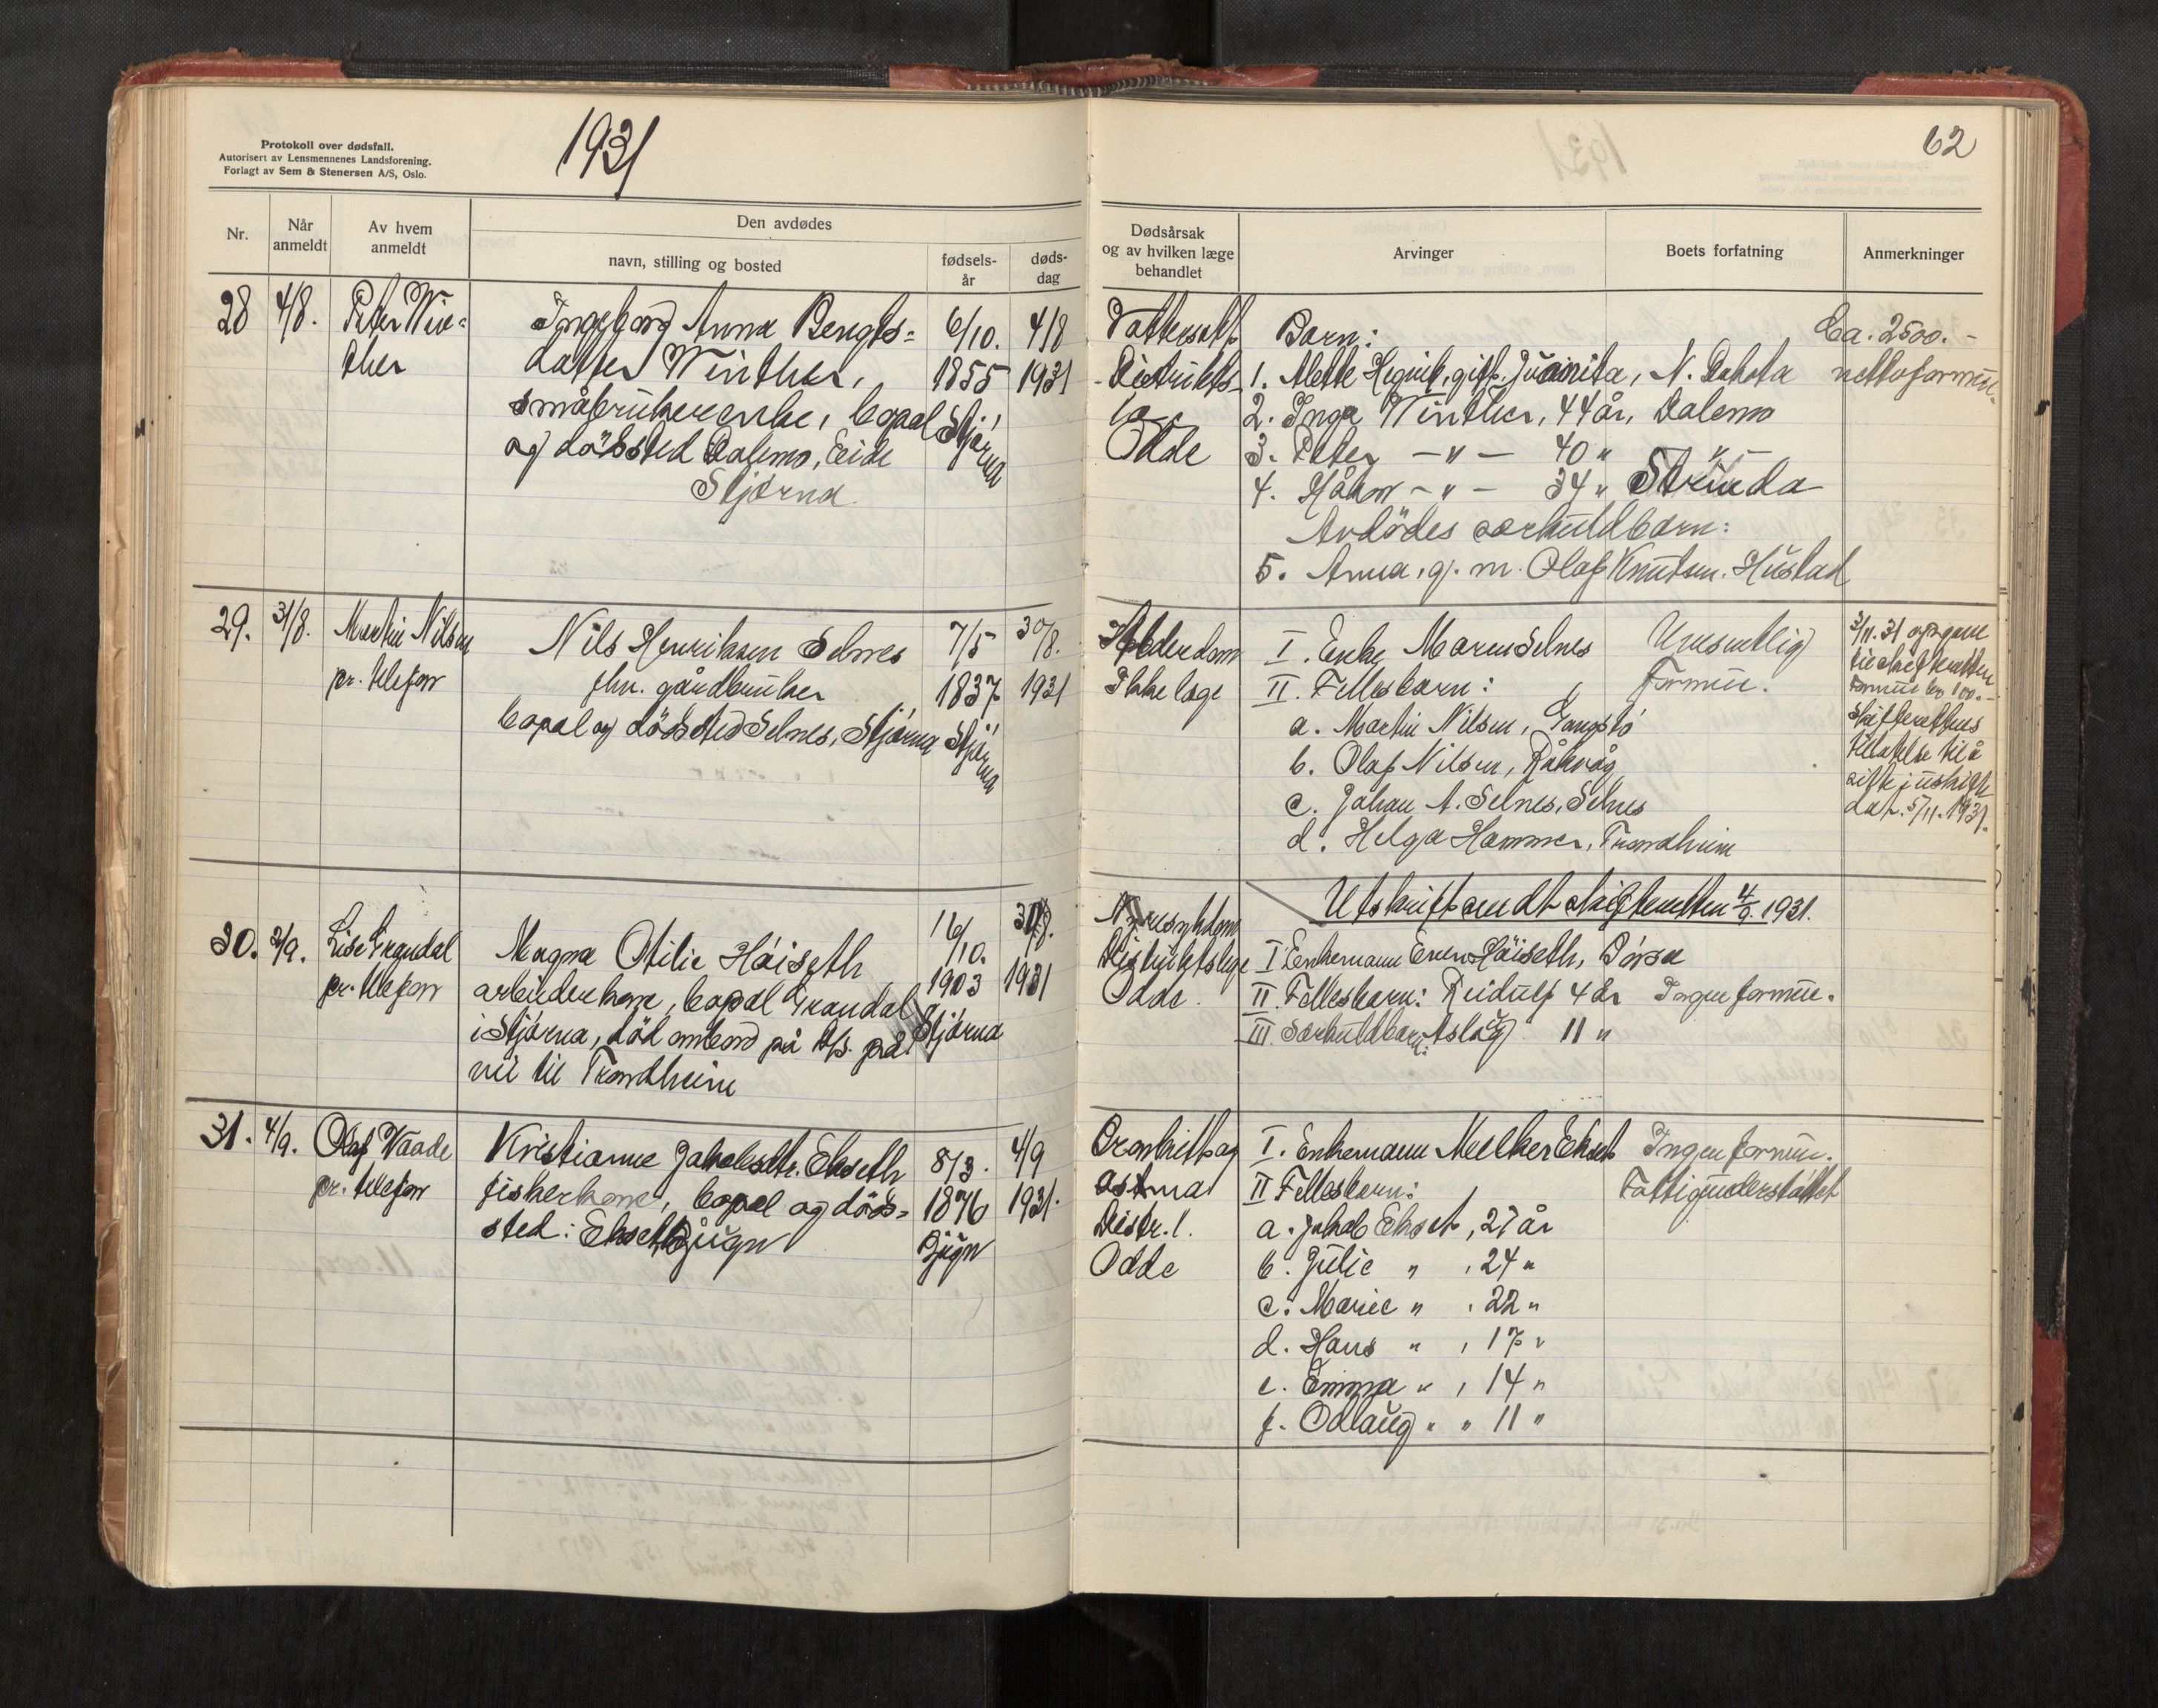 Protokoll over dødsfall.
Autorisert av Lensmennenes Landsforening.
Forlagt av Sem & Stenersen A/S, Oslo.
1931
62
Nr.
Når anmeldt
Av hvem anmeldt
Den avdødes
navn, stilling og bosted
fødsels-år
døds-dag
Dødsårsak og av hvilken læge behandlet
Arvinger
Boets forfatning
Anmerkninger
28 4/8. Peter Win=
ther
Ingeborg Anna Bengts=
datter Winther,
småbrukerenke, bopæl
og dödssted Dalemo, Eide
Stjørna
6/10.
1855
Stjørna
4/8
1931
Vattersott
Distrikts-
Odde
Barn:
1. Mette gift. Juanita, N. Dakota
2. Inga Winther, 44 år, Dalemo
3. Peter -"- 40 " "-
4. Håkon -"- 34 " Strinda
Avdödes særkuldbarn:
5. Anna, g. m. Olaf Knutsen. Hustad
Ca. 2500.-
nettoformue.
29. 31/8. Martin Nilsen
pr. telefon
Nils Henriksen Selnes
fhv. gårdbruker
bopæl og dödssted Selnes, Stjørna
7/5
1837
Stjørna
30/8.
1931
Alderdom
Ikke læge
I. Enke Maren Selnes
II. Fellesbarn:
a. Martin Nilsen,
b. Olaf Nilsen, Råkvåg
c. Johan A. Selnes, Selnes
d. Helga Hammer, Trondheim
Uvesentlig
formue.
3/11.31 opgave
til skifteretten
formue kr. 100.-
skifterettens
tillatelse til å
sitte i uskifte
dat. 5/11. 1931.
30. 2/9. Lise Grandal
pr. telefon
Magna Otilie Höiseth
arbeiderkone, bopæl Grandal
i Stjørna, död ombord på D/S. på
vei til Trondheim
16/10.
1903
Stjørna
31/8.
1931
Nyresykdom
Distriktslege
Odde.
Utskrift sendt skifteretten 4/9. 1931.
I Enkemann Höiseth, Börsa
II. Fellesbarn: Reidulf 4 år Ingen formue.
III. Særkuldbarn: Aslaug 11 "
31. 4/9. Olaf Vaade
pr. telefon
Kristianne Jakobsdtr. Ekseth
fiskerkone, bopæl og döds=
sted: Ekseth Bjugn
8/3.
1876
Bjugn
4/9
1931.
Bronkitt og
astma
Distr. l.
Odde
I. Enkemann Melker Ekset
II Fellesbarn:
a. Jakob Ekset, 27 år
b. Julie " , 24 "
c. Marie " , 22 "
d. Hans " , 17 "
e. Emma " , 14 "
f. Odlaug " " 11 "
Ingen formue.
Fattigunderstöttet